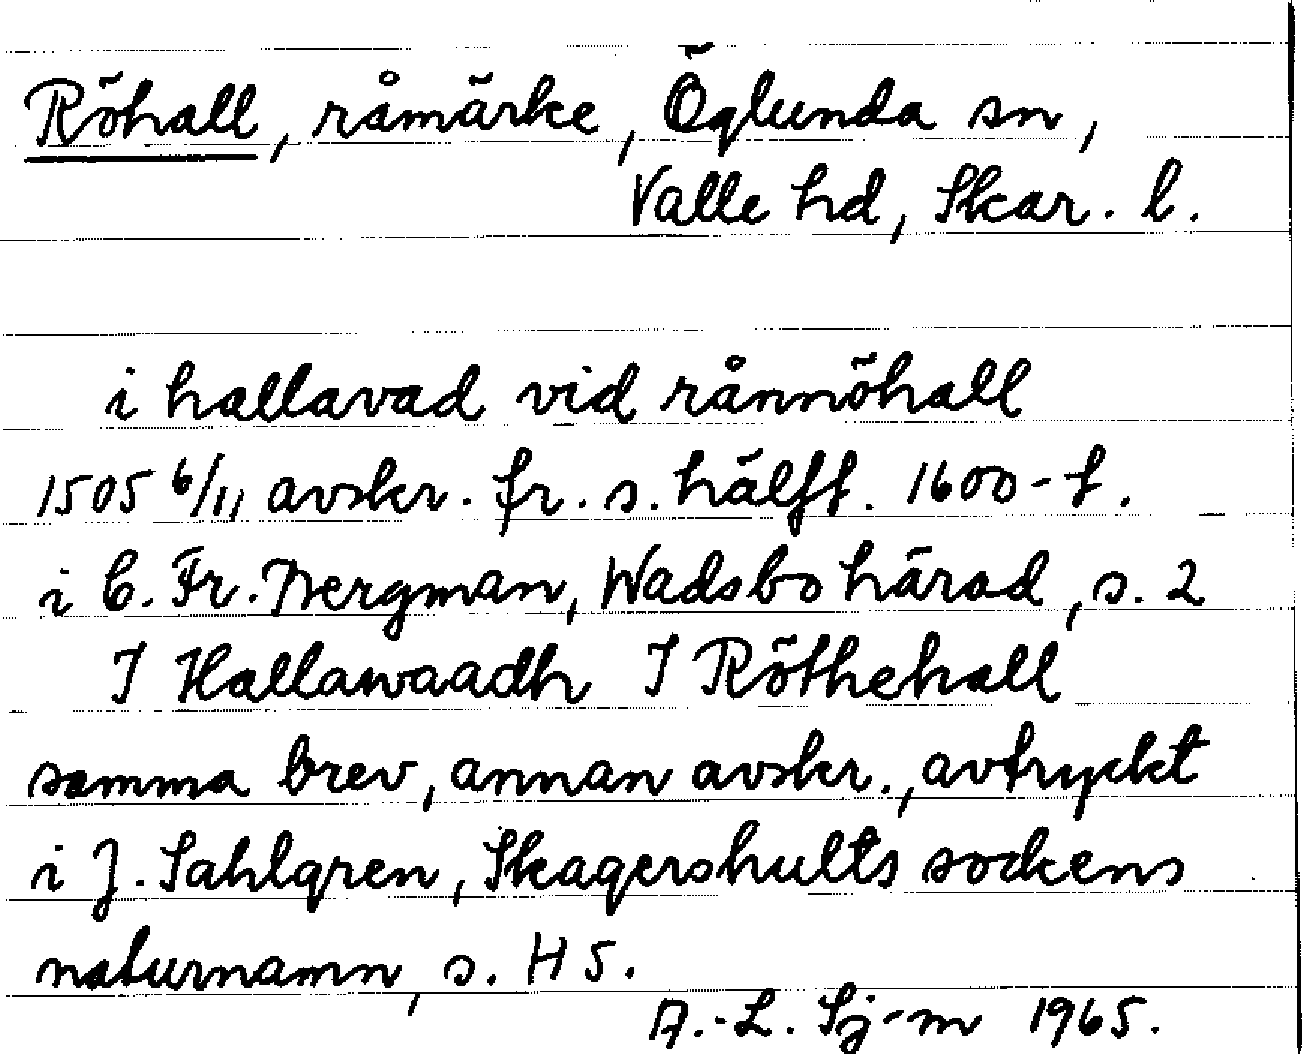 Röhall, råmärke, Öglunda sn,
Valle hd, Skar. l.
i hallavad vid rånnöhall
1505 6/11 avskr. fr. s. hälft. 1600-t.
i C. Fr. Bergman, Wadsbo härad, s. 2
I Hallawaadh I Röthehall
samma brev, annan avskr., avtryckt
i J. Sahlgren, Skagershults sockens
naturnamn, s. H 5.
A.-L. Sj-m 1965.